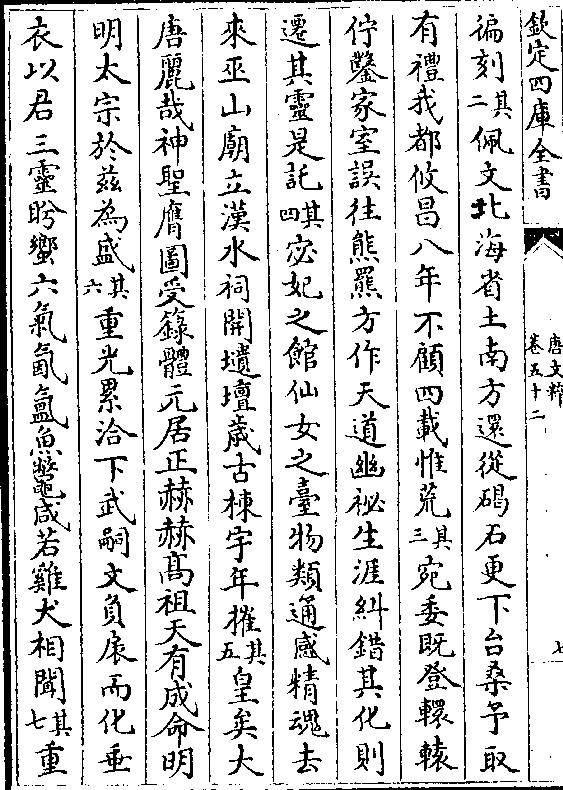 欽定四庫全書
唐文粹
卷五十二
七
徧刻其二佩文北海省土南方還從碣石更下台桑予取
有禮我都攸昌八年不顧四載惟荒其三宛委既登轘轅
佇鑿家室誤往熊羆方作天道幽祕生涯糾錯其化則
遷其靈是託其四宓妃之館仙女之臺物類通感精魂去
來巫山廟立漢水祠開壝壇歲古棟宇年摧其五皇矣大
唐麗哉神聖膺圖受籙體元居正赫赫高祖天有成命明
明太宗於兹為盛其六重光累洽下武嗣文負扆而化垂
衣以君三靈肸蠁六氣氤氳魚鼈咸若雞犬相聞其七重